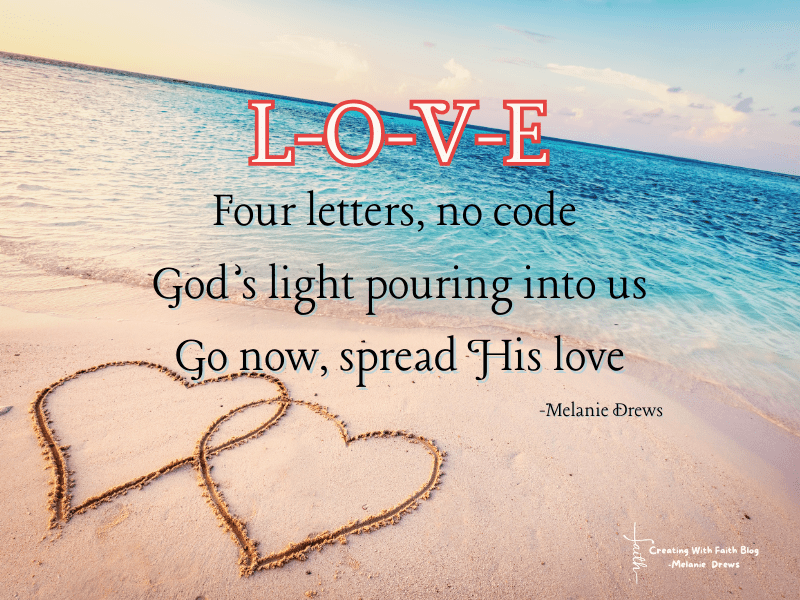 L-O-V-E
Four letters, no code
God's light pouring into us
Go now, spread His love
-Melanie Drews
faith
Creating With Faith Blog
-Melanie Drews